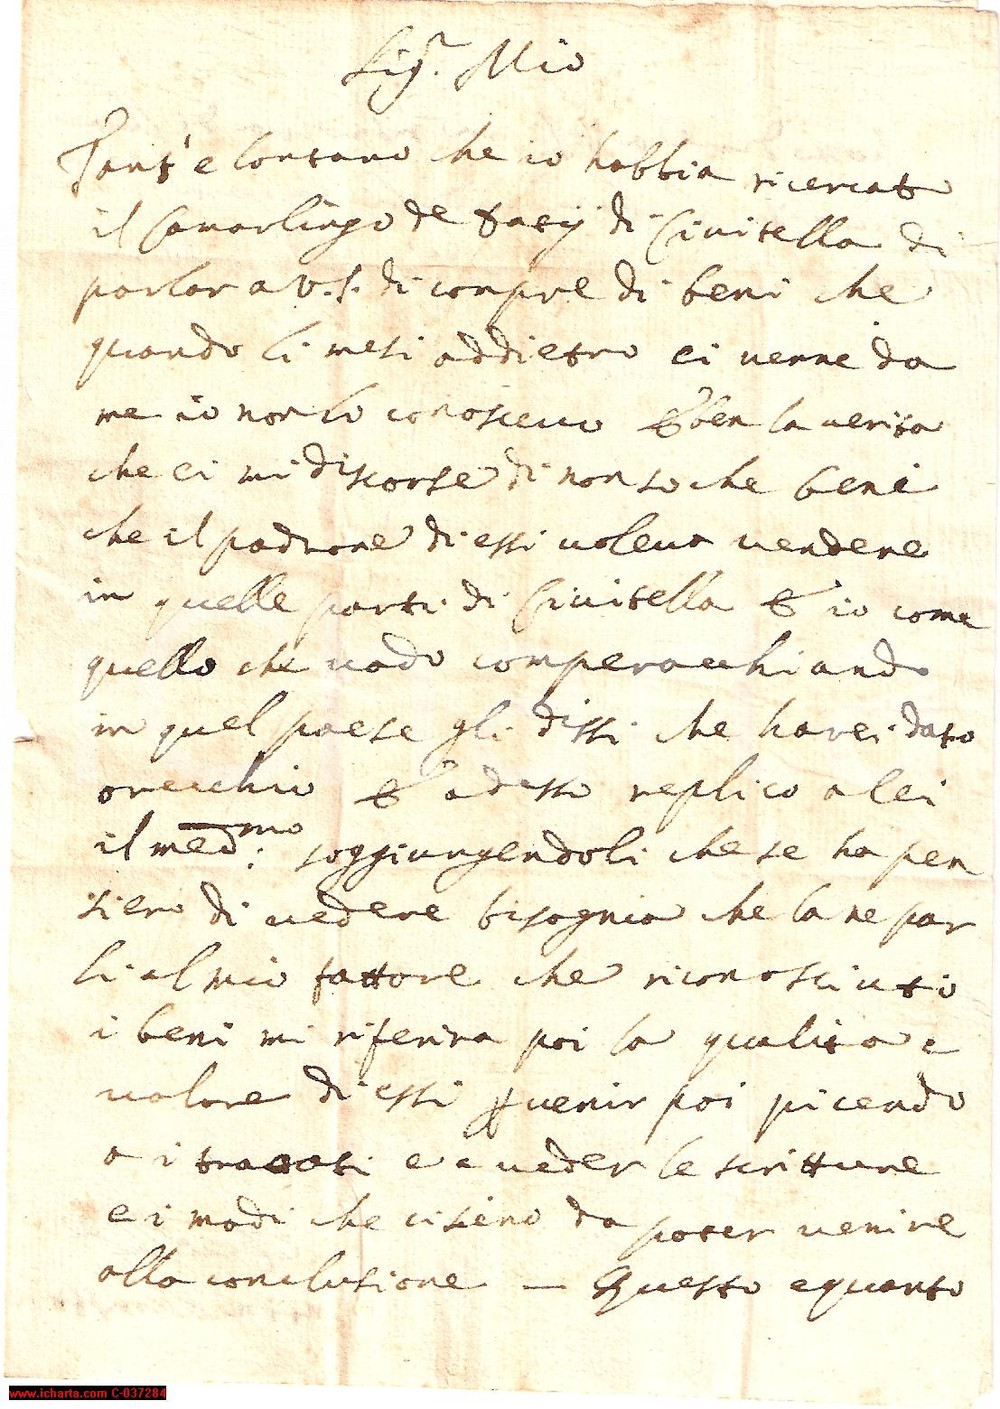 Sig.r Mio
Tant'e lontano che io habbia ricercato
il Camarlingo de di Civitella di
parlar a V.S. di compre di beni che
quando li mesi addietro ei venne da
me io non lo conoscevo & ben la verita
che ei mi discorse di non so che beni
che il padrone di essi voleva vendere
in quelle parti di Civitella & io come
quello che vado comperacchiando
in quel paese gli dissi che harei dato
orecchio & adesso replico a lei
il med.mo soggiungendoli che se ha pen
siero di vedere bisognia che la ne par
li al mio fattore che riconosciuti
i beni mi riferira poi la qualita e
valore di essi venir poi
a i trattati e a veder le scritture
e i modi che ci sieno da poter venire
alla conclusione — Questo e quanto
www.icharta.com C-037284